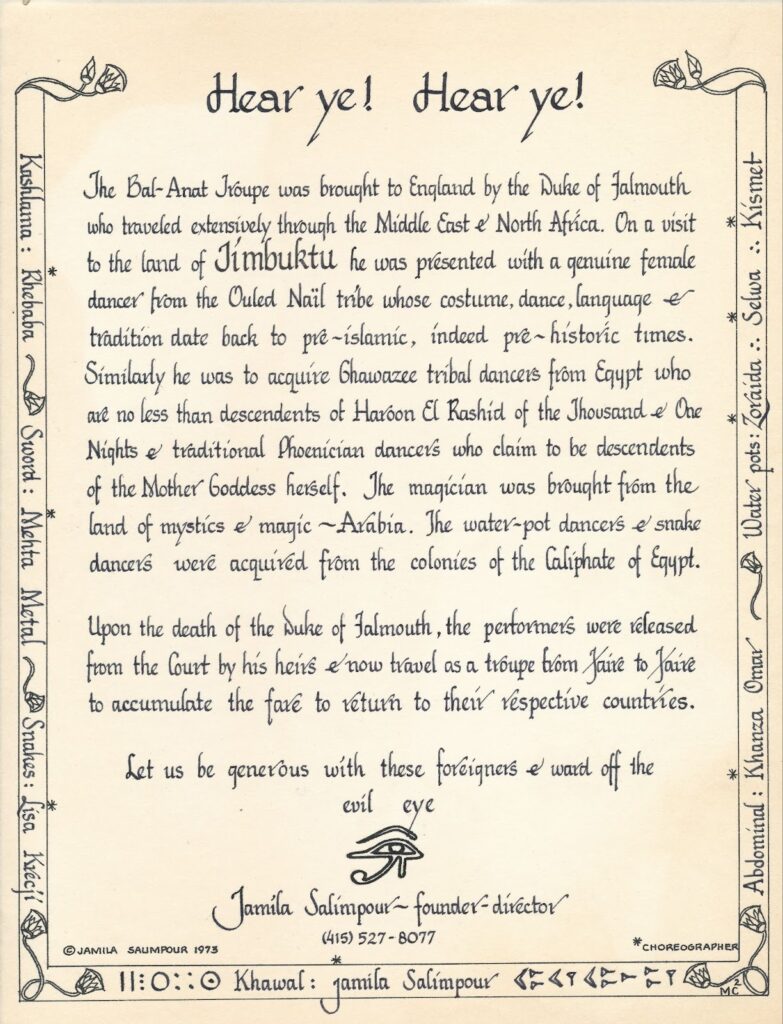 Hear ye! Hear ye!
The Bal-Anat Troupe was brought to England by the Duke of Falmouth
who traveled extensively through the Middle East & North Africa. On a visit
to the land of Timbuktu he was presented with a genuine female
dancer from the Ouled Naïl tribe whose costume, dance, language &
tradition date back to pre-islamic, indeed pre-historic times.
Similarly he was to acquire Ghawazee tribal dancers from Egypt who
are no less than descendents of Haroon El Rashid of the Thousand & One
Nights & traditional Phoenician dancers who claim to be descendents
of the Mother Goddess herself. The magician was brought from the
land of mystics & magic ~ Arabia. The water-pot dancers & snake
dancers were acquired from the colonies of the Caliphate of Egypt.
Upon the death of the Duke of Falmouth, the performers were released
from the Court by his heirs & now travel as a troupe from Faire to Faire
to accumulate the fare to return to their respective countries.
Let us be generous with these foreigners & ward off the
evil eye
Jamila Salimpour ~ founder-director
(415) 527-8077
© JAMILA SALIMPOUR 1973
*CHOREOGRAPHER
Kashlama: Rhebaba * Sword: Mehta Metal * Snakes: Lisa Krecji *
Abdominal: Khanza Omar * Water pots: Zoraida * ∴ Selwa * ∴ Kismet *
Khawal: * Jamila Salimpour
MC2